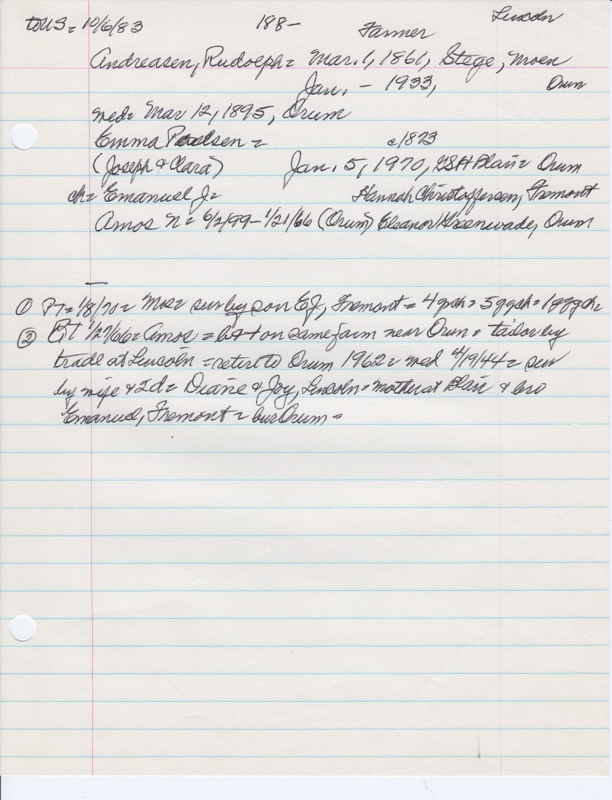 to US = 10/6/83 188- Farmer Lincoln
Andreasen, Rudolph = Mar. 1, 1861, Stege, Moen
Jan. - 1933, Orum
wed = Mar 12, 1895, Orum
Emma Poulsen = c1873
(Joseph & Clara) Jan. 5, 1970, GSH Blair = Orum
ch = Emanuel J = Hannah Christoffersen, Fremont
Amos N = 6/2/99 - 1/21/66 (Orum) Eleanor Greenwade, Orum
① PT = 1/8/70 = Mos = sur by son EJ, Fremont = 4 gch = 5 ggch = 1 gggch =
② PT 1/27/66 = Amos = b & d on same farm near Orum = tailor by
trade at Lincoln = retire to Orum 1962 = wed 4/19/44 = sur
by wife & 2d = Diane & Joy, Lincoln = mother at Blair & bro
Emanuel, Fremont = bur Orum =